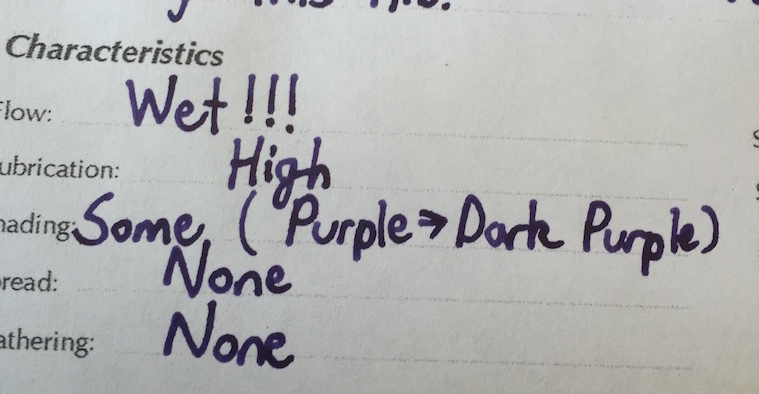 Characteristics
Flow: Wet!!!
ubrication: High
hading: Some, (Purple → Dark Purple)
read: None
athering: None